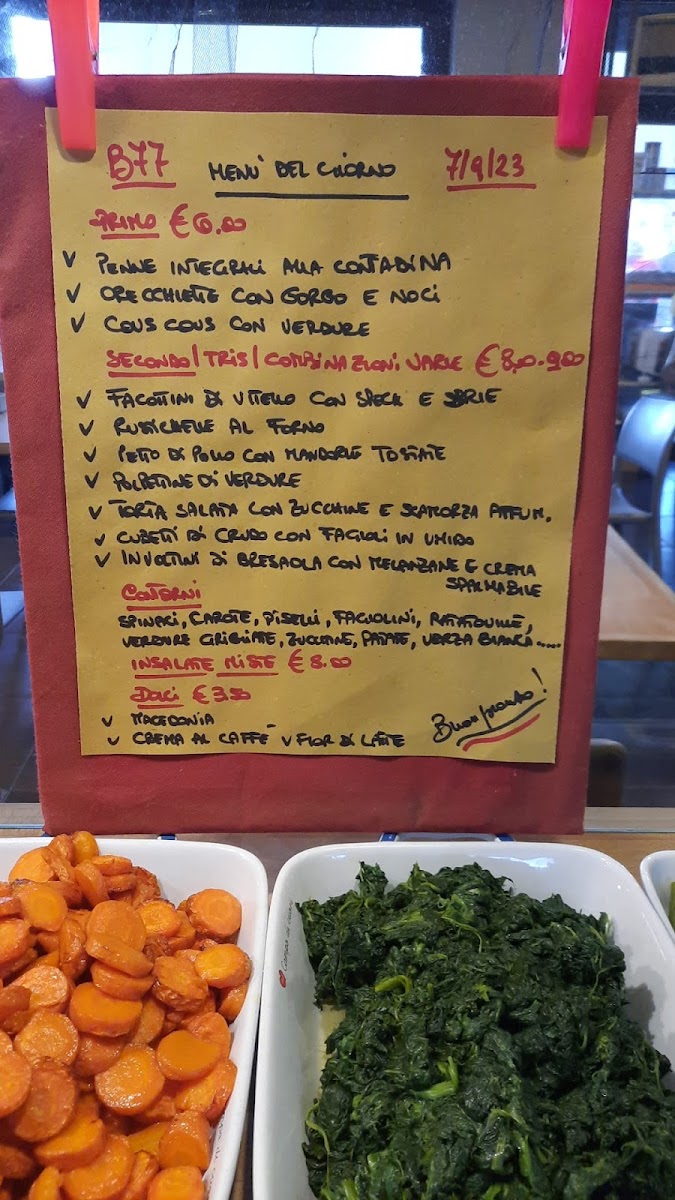 B77 MENÙ DEL GIORNO 7/9/23
PRIMO €6.00
✓ PENNE INTEGRALI ALLA CONTADINA
✓ ORECCHIETTE CON GORGO E NOCI
✓ COUS COUS CON VERDURE
SECONDO/TRIS/COMBINAZIONI VARIE €8,00-9,00
✓ FAGOTTINI DI VITELLO CON SPECK E BRIE
✓ RUSTICHELLE AL FORNO
✓ PETTO DI POLLO CON MANDORLE TOSTATE
✓ POLPETTINE DI VERDURE
✓ TORTA SALATA CON ZUCCHINE E SCAMORZA AFFUM.
✓ CUBETTI DI CRUDO CON FAGIOLI IN UMIDO
✓ INVOLTINI DI BRESAOLA CON MELANZANE E CREMA
SPALMABILE
CONTORNI
SPINACI, CAROTE, PISELLI, FAGIOLINI, RATATOUILLE,
VERDURE GRIGLIATE, ZUCCHINE, PATATE, VERZA BIANCA.....
INSALATE MISTE €8.00
DOLCI €3.50
✓ MACEDONIA
✓ CREMA AL CAFFÈ ✓ FIOR DI LATTE
Buon pranzo!